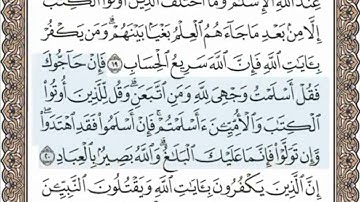 عِندَ ٱللَّهِ ٱلْإِسْلَٰمُ وَمَا ٱخْتَلَفَ ٱلَّذِينَ أُوتُوا۟ ٱلْكِتَٰبَ
إِلَّا مِنۢ بَعْدِ مَا جَآءَهُمُ ٱلْعِلْمُ بَغْيًۢا بَيْنَهُمْ ۗ وَمَن يَكْفُرْ
بِـَٔايَٰتِ ٱللَّهِ فَإِنَّ ٱللَّهَ سَرِيعُ ٱلْحِسَابِ ١٩ فَإِنْ حَآجُّوكَ
فَقُلْ أَسْلَمْتُ وَجْهِىَ لِلَّهِ وَمَنِ ٱتَّبَعَنِ ۗ وَقُل لِّلَّذِينَ أُوتُوا۟
ٱلْكِتَٰبَ وَٱلْأُمِّيِّـۧنَ ءَأَسْلَمْتُمْ ۚ فَإِنْ أَسْلَمُوا۟ فَقَدِ ٱهْتَدَوا۟ ۖ
وَّإِن تَوَلَّوْا۟ فَإِنَّمَا عَلَيْكَ ٱلْبَلَٰغُ ۗ وَٱللَّهُ بَصِيرٌۢ بِٱلْعِبَادِ ٢٠
إِنَّ ٱلَّذِينَ يَكْفُرُونَ بِـَٔايَٰتِ ٱللَّهِ وَيَقْتُلُونَ ٱلنَّبِيِّـۧنَ